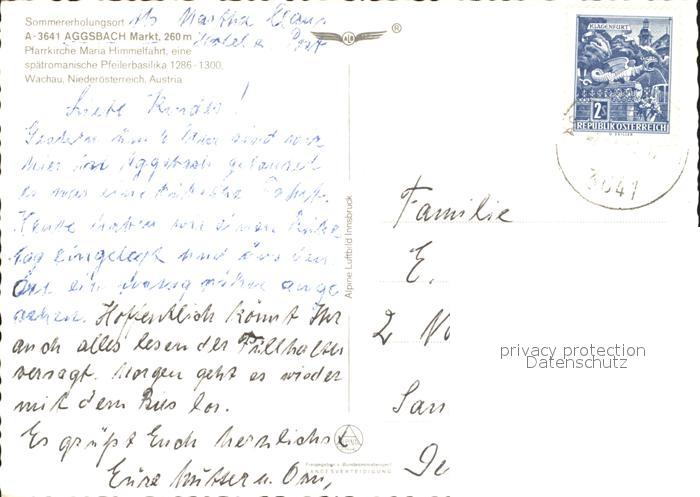 Sommererholungsort
A-3641 AGGSBACH Markt, 260 m
Pfarrkirche Maria Himmelfahrt, eine
spätromanische Pfeilerbasilika 1286-1300,
Wachau, Niederösterreich, Austria
ALB
®
KLAGENFURT
2s
REPUBLIK ÖSTERREICH
3641
Liebe Kinder!
Gestern um 4 Uhr sind wir
hier in Aggsbach gelandet
es war eine
Heute haben wir einen
tag eingelegt und uns den
Ort ein wenig näher ange
sehen. Hoffentlich könnt Ihr
auch alles lesen der Füllhalter
versagt. Morgen geht es wieder
mit dem Bus los.
Es grüßt Euch herzlichst
Eure Mutter u. Omi,
Alpine Luftbild Innsbruck
Familie
E.
2
San
De
privacy protection
Datenschutz